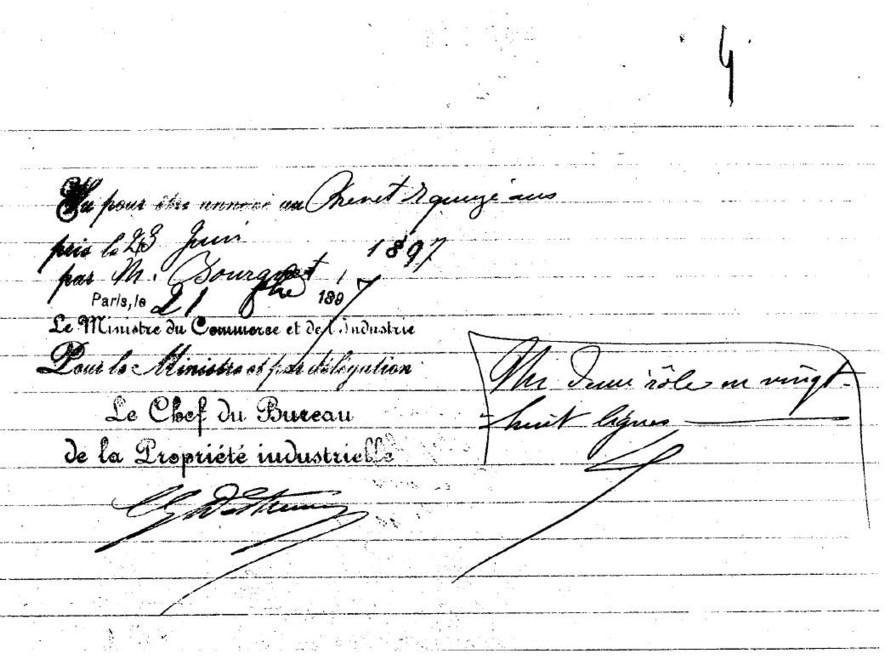 4
Vu pour être annexé au Brevet de quinze ans
pris le 23 Juin 1897
par M. Bourquet
Paris, le 21 1897
Le Ministre du Commerce et de l'Industrie
Pour le Ministre et par délégation
Le Chef du Bureau
de la Propriété industrielle
rôle en vingt-
huit lignes